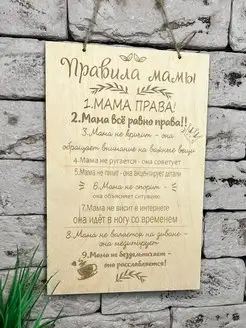 Правила мамы
1.МАМА ПРАВА!
2.Мама всё равно права!!
3.Мама не кричит - она
обращает внимание на важные вещи
4.Мама не ругается - она советует
5.Мама не пилит - она акцентирует детали
6.Мама не спорит -
она объясняет ситуацию
7.Мама не висит в интернете
она идёт в ногу со временем
8.Мама не валяется на диване -
она медитирует
9.Мама не бездельничает -
она расслабляется!